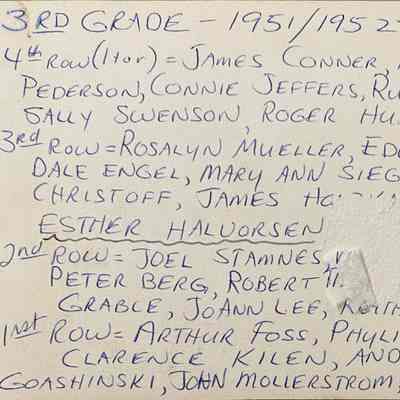 3RD GRADE - 1951/1952
4th ROW (l to r) = JAMES CONNER,
PEDERSON, CONNIE JEFFERS,
SALLY SWENSON, ROGER
3rd ROW = ROSALYN MUELLER,
DALE ENGEL, MARY ANN
CHRISTOFF, JAMES
ESTHER HALVORSEN
2nd ROW = JOEL STAMNES,
PETER BERG, ROBERT
GRABLE, JOANN LEE,
1st ROW = ARTHUR FOSS,
CLARENCE KILEN,
GOASHINSKI, JOHN MOLLERSTROM,